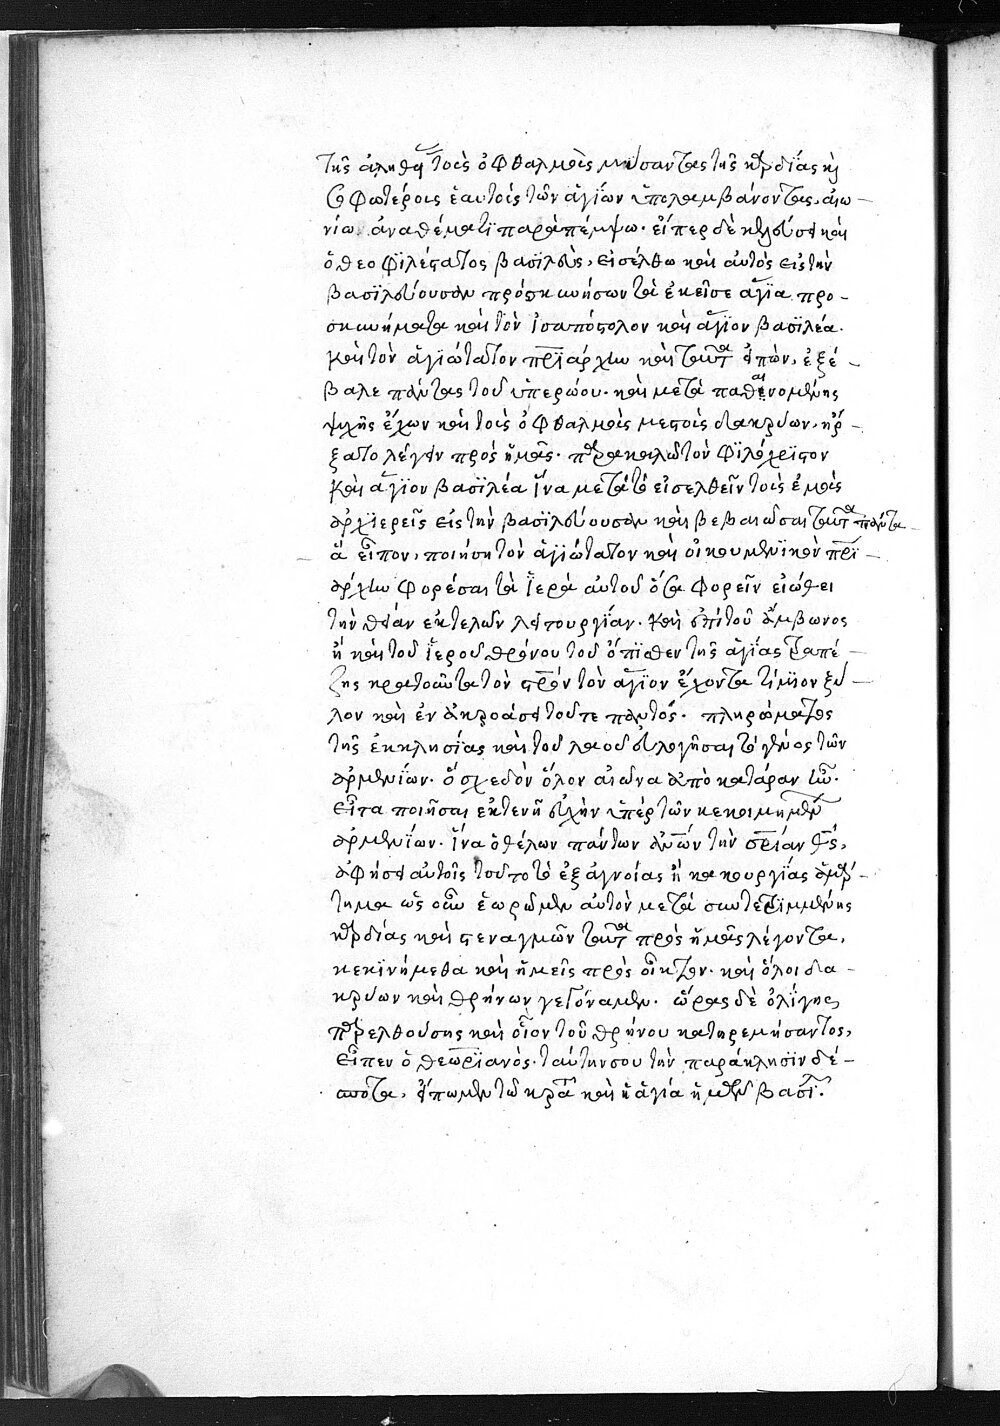 τῆς ἀληθείας τοῖς ὀφθαλμοῖς μύσαντας τῆς καρδίας καὶ
σοφωτέροις ἑαυτοῖς τῶν ἁγίων ὑπολαμβάνοντας, αἰω-
νίω ἀναθέματι παραπέμψω. εἴπερ δὲ κελεύσει καὶ
ὁ θεοφιλέστατος βασιλεύς, εἰσέλθω καὶ αὐτὸς εἰς τὴν
βασιλεύουσαν προσκυνήσων τὰ ἐκεῖσε ἅγια προ-
σκυνήματα καὶ τὸν ἰσαπόστολον καὶ ἅγιον βασιλέα.
καὶ τὸν ἁγιώτατον πριάρχην καὶ ταῦτα εἰπών, ἐξέ-
βαλε πάντας τοῦ ὑπερώου. καὶ μετὰ παθαινομένης
ψυχῆς ἔχων καὶ τοὺς ὀφθαλμοὺς μεστοὺς δακρύων, ἤρ-
ξατο λέγειν πρὸς ἡμᾶς. παρακαλῶ τὸν φιλόχριστον
καὶ ἅγιον βασιλέα ἵνα μετὰ τὸ εἰσελθεῖν τοὺς ἐμοὺς
ἀρχιερεῖς εἰς τὴν βασιλεύουσαν καὶ βεβαιῶσαι ταῦτα πάντα
ἃ εἶπον, ποιήση τὸν ἁγιώτατον καὶ οἰκουμενικὸν πρι-
άρχην φορέσαι τὰ ἱερὰ αὐτοῦ ὅσα φορεῖν εἰώθει
τὴν θείαν ἐκτελῶν λειτουργίαν. καὶ ἐπὶ τοῦ ἄμβωνος
ἢ καὶ τοῦ ἱεροῦ θρόνου τοῦ ὄπισθεν τῆς ἁγίας τραπέ-
ζης κρατοῦντα τὸν σρόν τὸν ἅγιον ἔχοντα τίμιον ξύ-
λον καὶ ἐν ἀκροάσει τοῦ τε παντός. πληρώματος
τῆς ἐκκλησίας καὶ τοῦ λαοῦ εὐλογῆσαι τὸ γένος τῶν
ἀρμενίων. ὃ σχεδὸν ὅλον αἰῶνα ὑπὸ κατάραν ἦν.
εἶτα ποιῆσαι ἐκτενῆ εὐχὴν ὑπὲρ τῶν κεκοιμημένων
ἀρμενίων. ἵνα ὁ θέλων πάντων ἀνων τὴν σριαν θς,
ἀφήσει αὐτοῖς τοῦτο τὸ ἐξ ἀγνοίας ἢ κακουργίας ἁμάρ-
τημα ὡς οὖν ἑωρῶμεν αὐτὸν μετὰ συντετριμμένης
καρδίας καὶ στεναγμῶν ταῦτα πρὸς ἡμᾶς λέγοντα,
κεκινήμεθα καὶ ἡμεῖς πρὸς οἶκτον. καὶ ὅλοι δα-
κρύων καὶ θρήνων γεγόναμεν. ὥρας δὲ ὀλίγης
παρελθούσης καὶ οἷον τοῦ θρήνου κατηρεμήσαντος,
εἶπεν ὁ θεωριανός. ταύτην σου τὴν παράκλησιν δέ-
σποτα, εἴπωμεν τῶ κρα καὶ ἡ ἁγία ἡμῶν βασι.